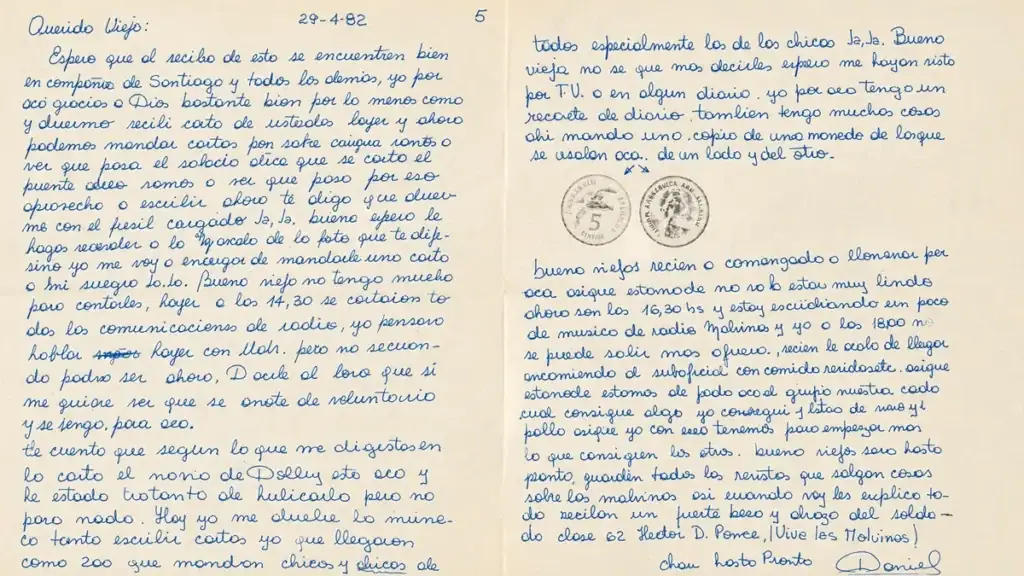 29-4-82
5
Querido Viejo:
Espero que al recibo de esto se encuentren bien
en compañia de Santiago y todos los demás, yo por
acá gracias a Dios bastante bien por lo menos como
y duermo recibi carta de ustedes hayer y ahora
podemos mandar cartas por sobre
ver que pasa el salocio dice que se carto el
puente aereo vamos a ver que pasa por eso
aprosecho a escribir ahora te digo que duer-
mo con el fusil cargado Ja, Ja. bueno espero le
hagas recordar a lo de la foto que te dije
sino yo me voy a encargar de mandarle una carta
a mi suegro Jo. Jo. Bueno viejo no tengo mucho
para contarles, hayer a los 14,30 se cortaron to
das las comunicaciones de radio, yo pensaba
hablar hayer con Uds. pero no se cuan-
do podra ser ahora, Decile al loro que si
me quiere ver que se anote de voluntario
y se tenga para aca.
te cuento que segun lo que me digistes en
la carta el novio de Dolly esta aca y
he estado tratando de hubicarlo pero no
paro nada. Hoy ya me duele la muñe-
ca tanto escribir cartas ya que llegaron
como 200 que mandan chicos y chicas de
todos especialmente las de las chicas Ja, Ja. Bueno
vieja no se que mas decirles espero me hayan visto
por T.V. o en algun diario. yo por aca tengo un
recorte de diario. tambien tengo muchas cosas
ahi mando una copia de una moneda de las que
se usaban aca. de un lado y del otro.
5
bueno viejos recien a comenzado a lloviznar por
aca asique esta noche no va a estar muy lindo
ahora son las 16,30 hs y estoy escuchando un poco
de musica de radio Malvinas y ya a las 18,00 no
se puede salir mas afuera., recien le acaba de llegar
encomienda al suboficial con comida asique
esta noche estamos de aca el grupo nuestro cada
cual consigue algo yo consegui 1 latas de y 1
pollo asique ya con eso tenemos para empezar mas
lo que consiguen los otros. bueno viejos sera hasta
pronto, guarden todas las revistas que salgan cosas
sobre las malvinas asi cuando voy les explico to-
do reciban un fuerte beso y abrazo del solda-
do clase 62 Hector D. Ponce, ¡Viva las Malvinas!
chau hasta Pronto
Daniel